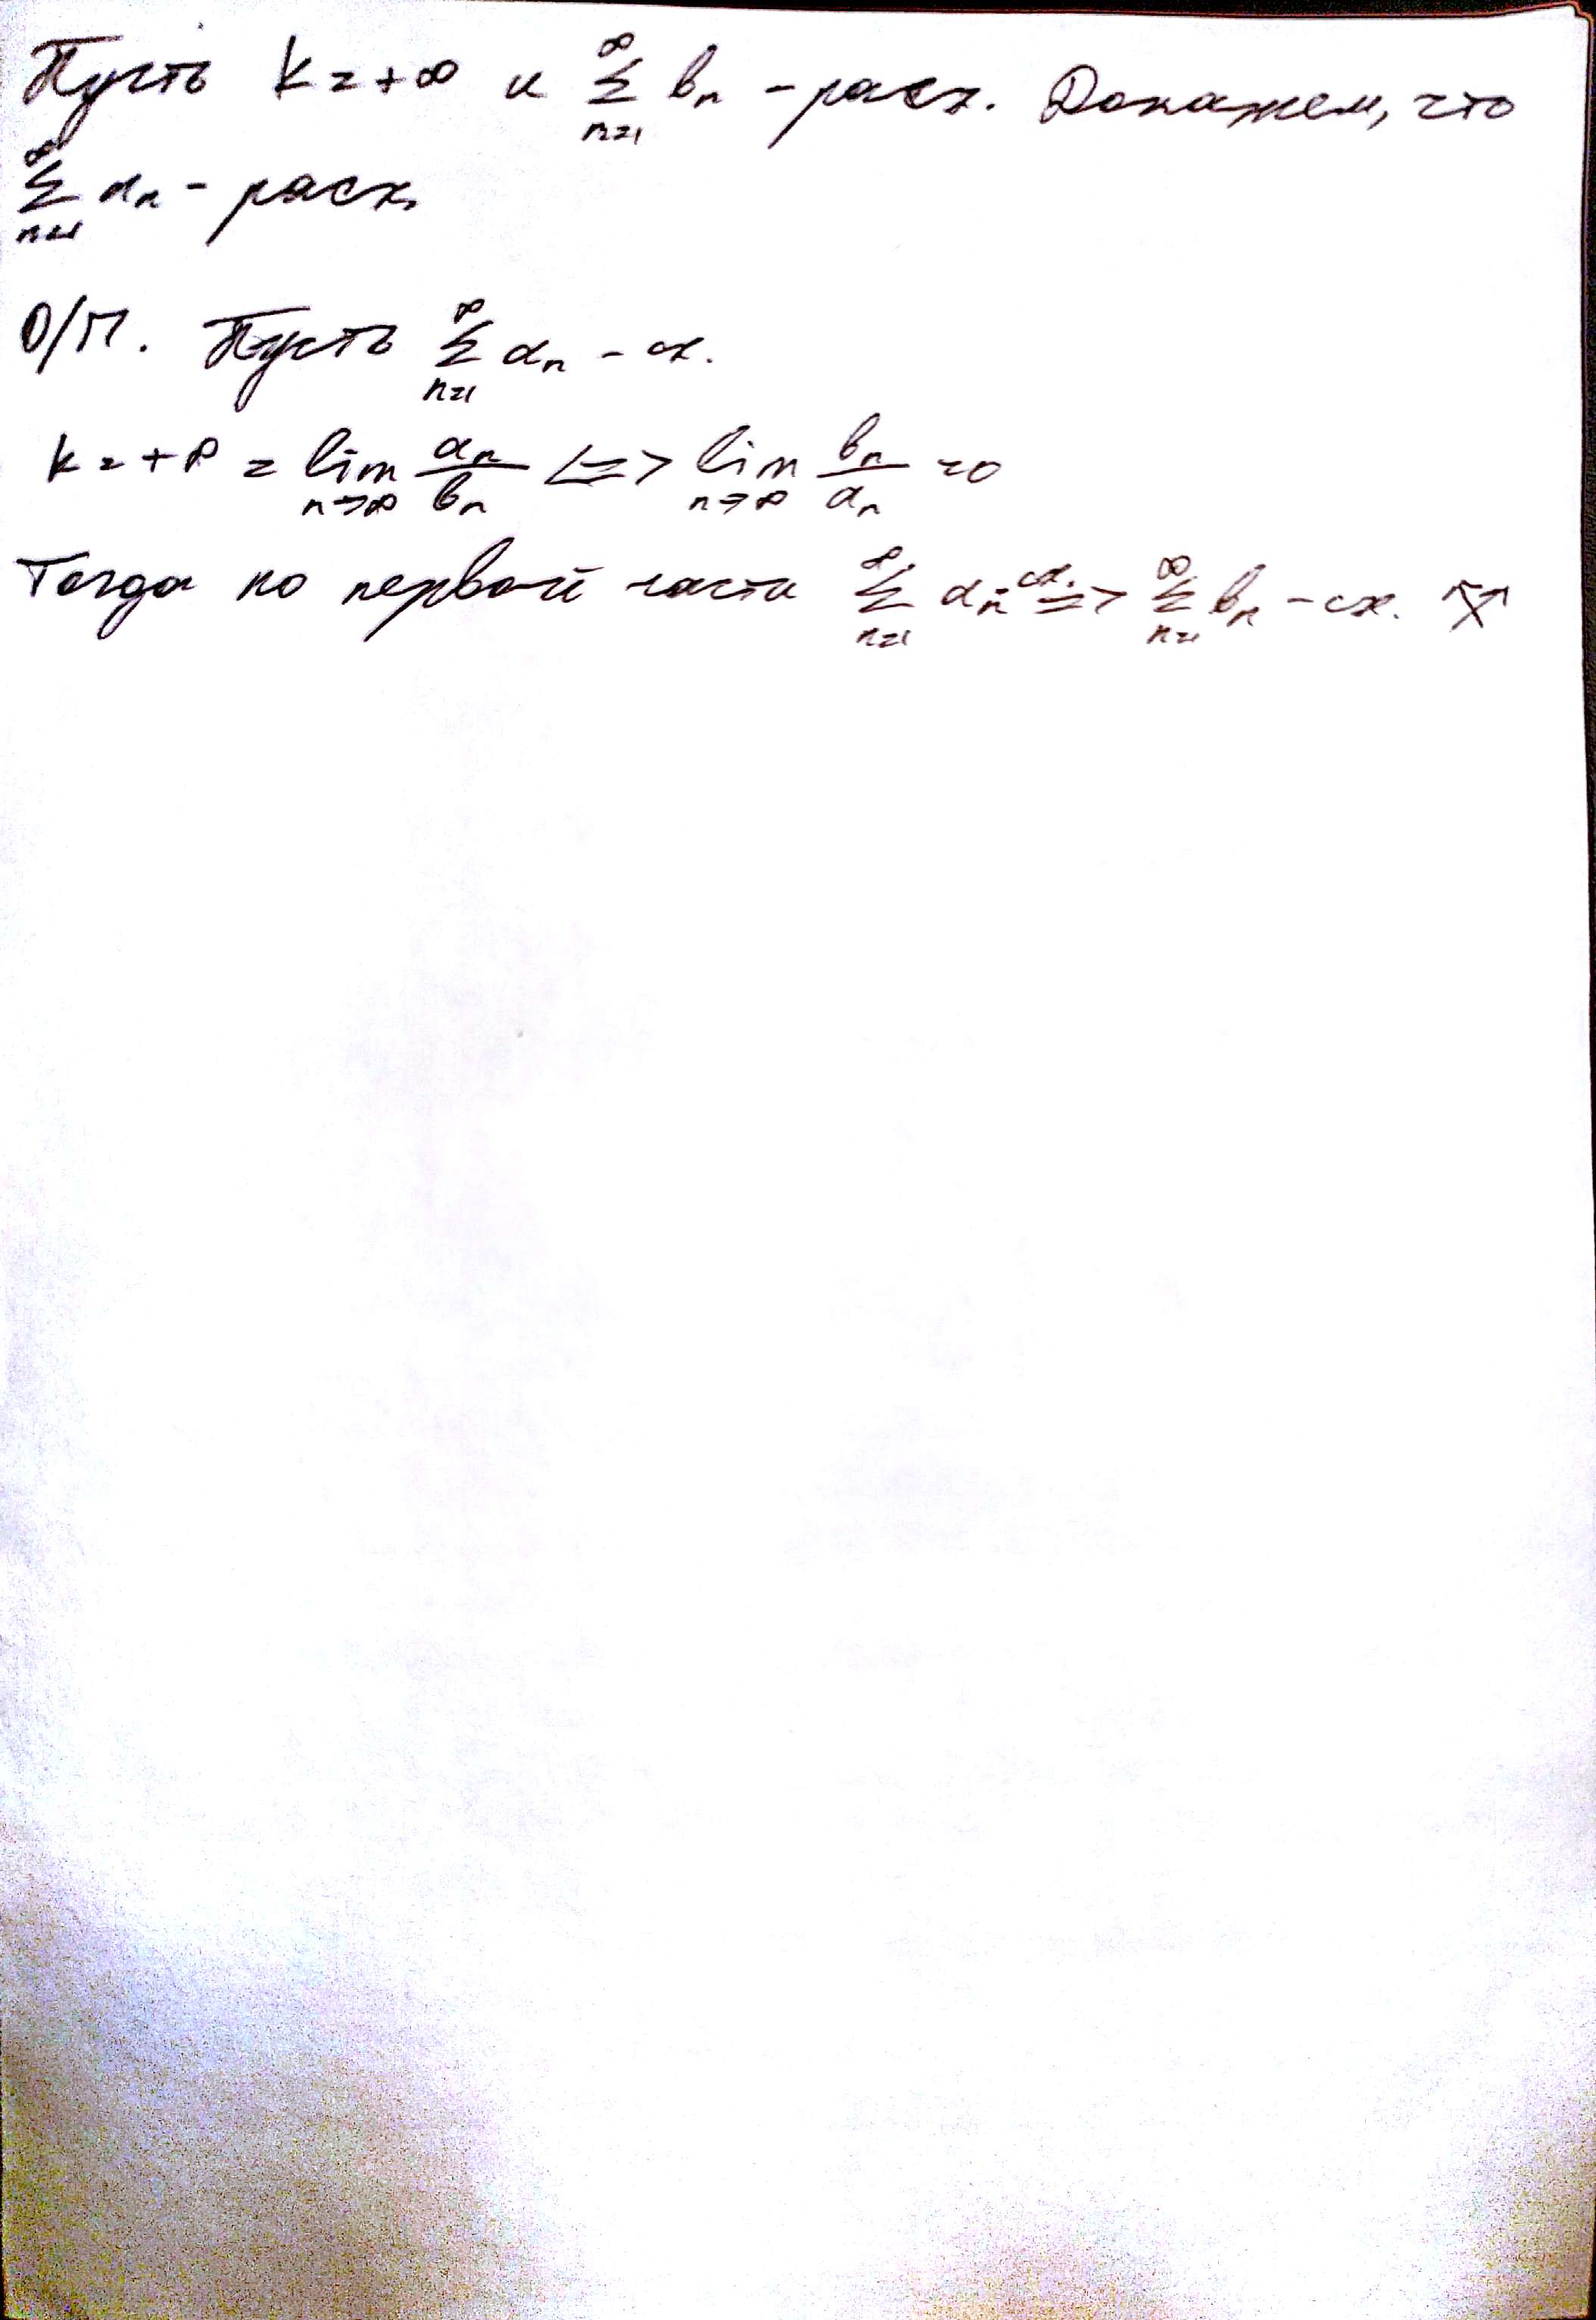 Пусть k = +∞ и ∑_{n=1}^{∞} bₙ - расх. Докажем, что
∑_{n=1}^{∞} aₙ - расх.
О/П. Пусть ∑_{n=1}^{∞} aₙ - сх.
k = +∞ = lim_{n→∞} aₙ/bₙ <=> lim_{n→∞} bₙ/aₙ = 0
Тогда по первой части ∑_{n=1}^{∞} aₙ - сх. => ∑_{n=1}^{∞} bₙ - сх.